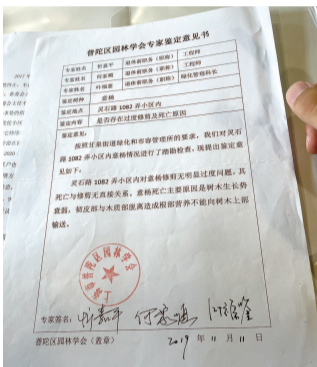 普陀区园林学会专家鉴定意见书
专家姓名 忻嘉平 退休前职务（职称） 工程师
专家姓名 何家顺 退休前职务（职称） 工程师
专家姓名 退休前职务（职称） 绿化管理科长
鉴定树种 意杨
鉴定地点 灵石路1082弄小区内
鉴定内容 是否存在过度修剪及死亡原因
鉴定意见：
按照甘泉街道绿化和市容管理所的要求，我们对灵石
路1082弄小区内意杨情况进行了踏勘检查。现提出鉴定意
见如下：
灵石路1082弄小区内对意杨修剪无明显过度问题，其
死亡与修剪无直接关系。意杨死亡主要原因是树木生长势
衰弱，韧皮部与木质部脱离造成根部营养不能向树木上部
输送。
普陀区园林学会
专家签名：忻嘉平
普陀区园林学会（盖章） 2019年11月11日